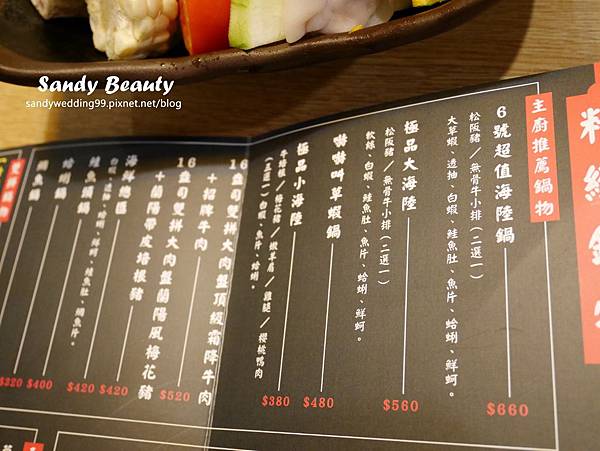 Sandy Beauty
sandywedding99.pixnet.net/blog
主廚推薦鍋物
6號超值海陸鍋
松阪豬／無骨牛小排(二選一)
大草蝦、透抽、白蝦、鮭魚肚、魚片、蛤蜊、鮮蚵。
$660
極品大海陸
松阪豬／無骨牛小排(二選一)
軟絲、白蝦、鮭魚肚、魚片、蛤蜊、鮮蚵。
$560
啾啾叫草蝦鍋
$480
極品小海陸
牛培根／梅花豬／嫩草肩／雞腿／櫻桃鴨肉
(二選一)白蝦、魚片、蛤蜊。
$380
16盎司雙拼大肉盤頂級霜降牛肉
＋招牌牛肉
16盎司雙拼大肉盤蘭陽風梅花豬
＋蘭陽帶皮培根豬
$520
海鮮總匯
白蝦、透抽、蛤蜊、鮮蚵、鮭魚肚、鯛魚片。
$420
鮭魚頭鍋
$420
蛤蜊鍋
$400
鯛魚鍋
$320